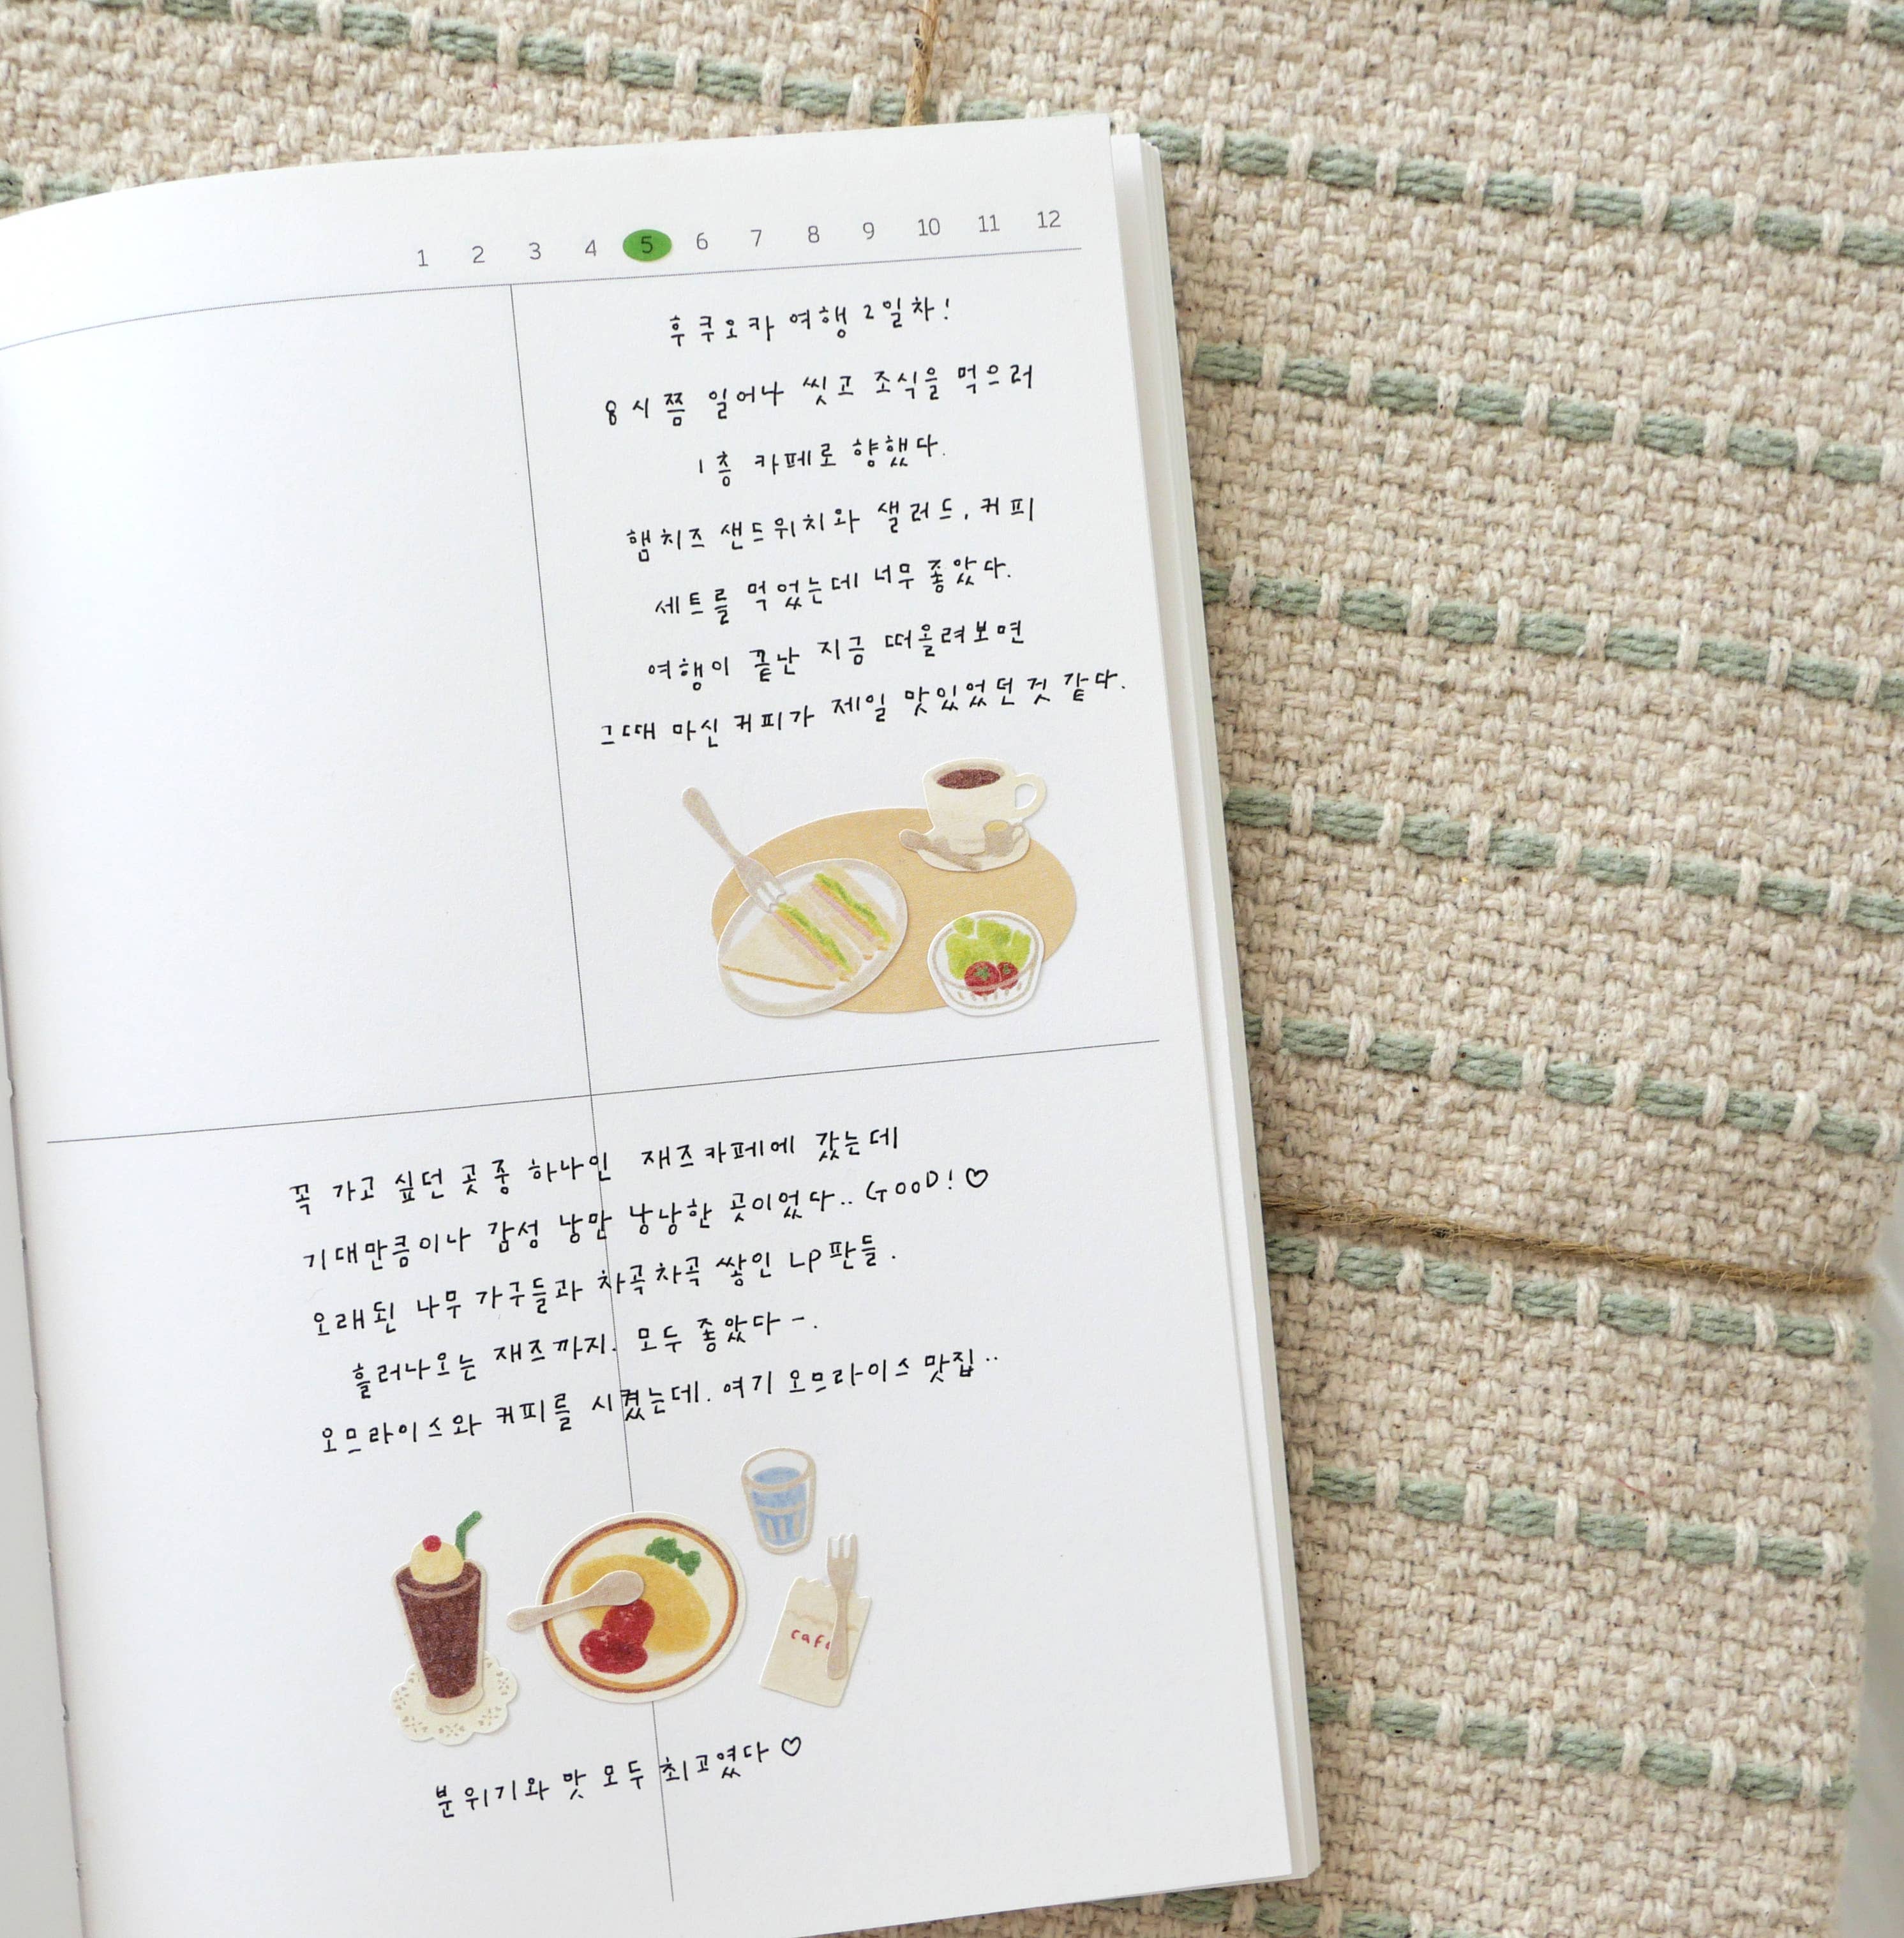 1 2 3 4 5 6 7 8 9 10 11 12
후쿠오카 여행 2일차!
8시쯤 일어나 씻고 조식을 먹으러
1층 카페로 향했다.
햄치즈 샌드위치와 샐러드, 커피
세트를 먹었는데 너무 좋았다.
여행이 끝난 지금 떠올려보면
그때 마신 커피가 제일 맛있었던 것 같다.
꼭 가고 싶던 곳 중 하나인 재즈카페에 갔는데
기대만큼이나 감성 낭만 낭낭한 곳이었다.. GOOD! ♡
오래된 나무 가구들과 차곡차곡 쌓인 LP판들.
흘러나오는 재즈까지. 모두 좋았다-.
오므라이스와 커피를 시켰는데. 여기 오므라이스 맛집..
cafe
분위기와 맛 모두 최고였다 ♡